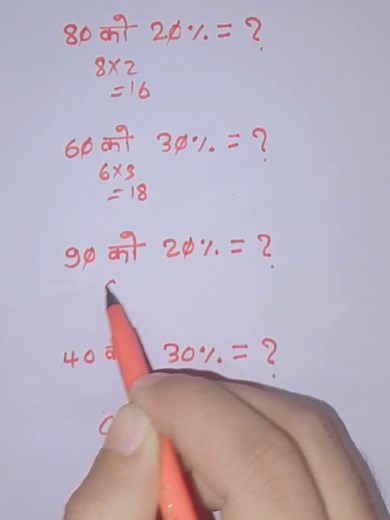 80 को 20% = ?
8×2
=16
60 को 30% = ?
6×3
=18
90 को 20% = ?
40 30% = ?